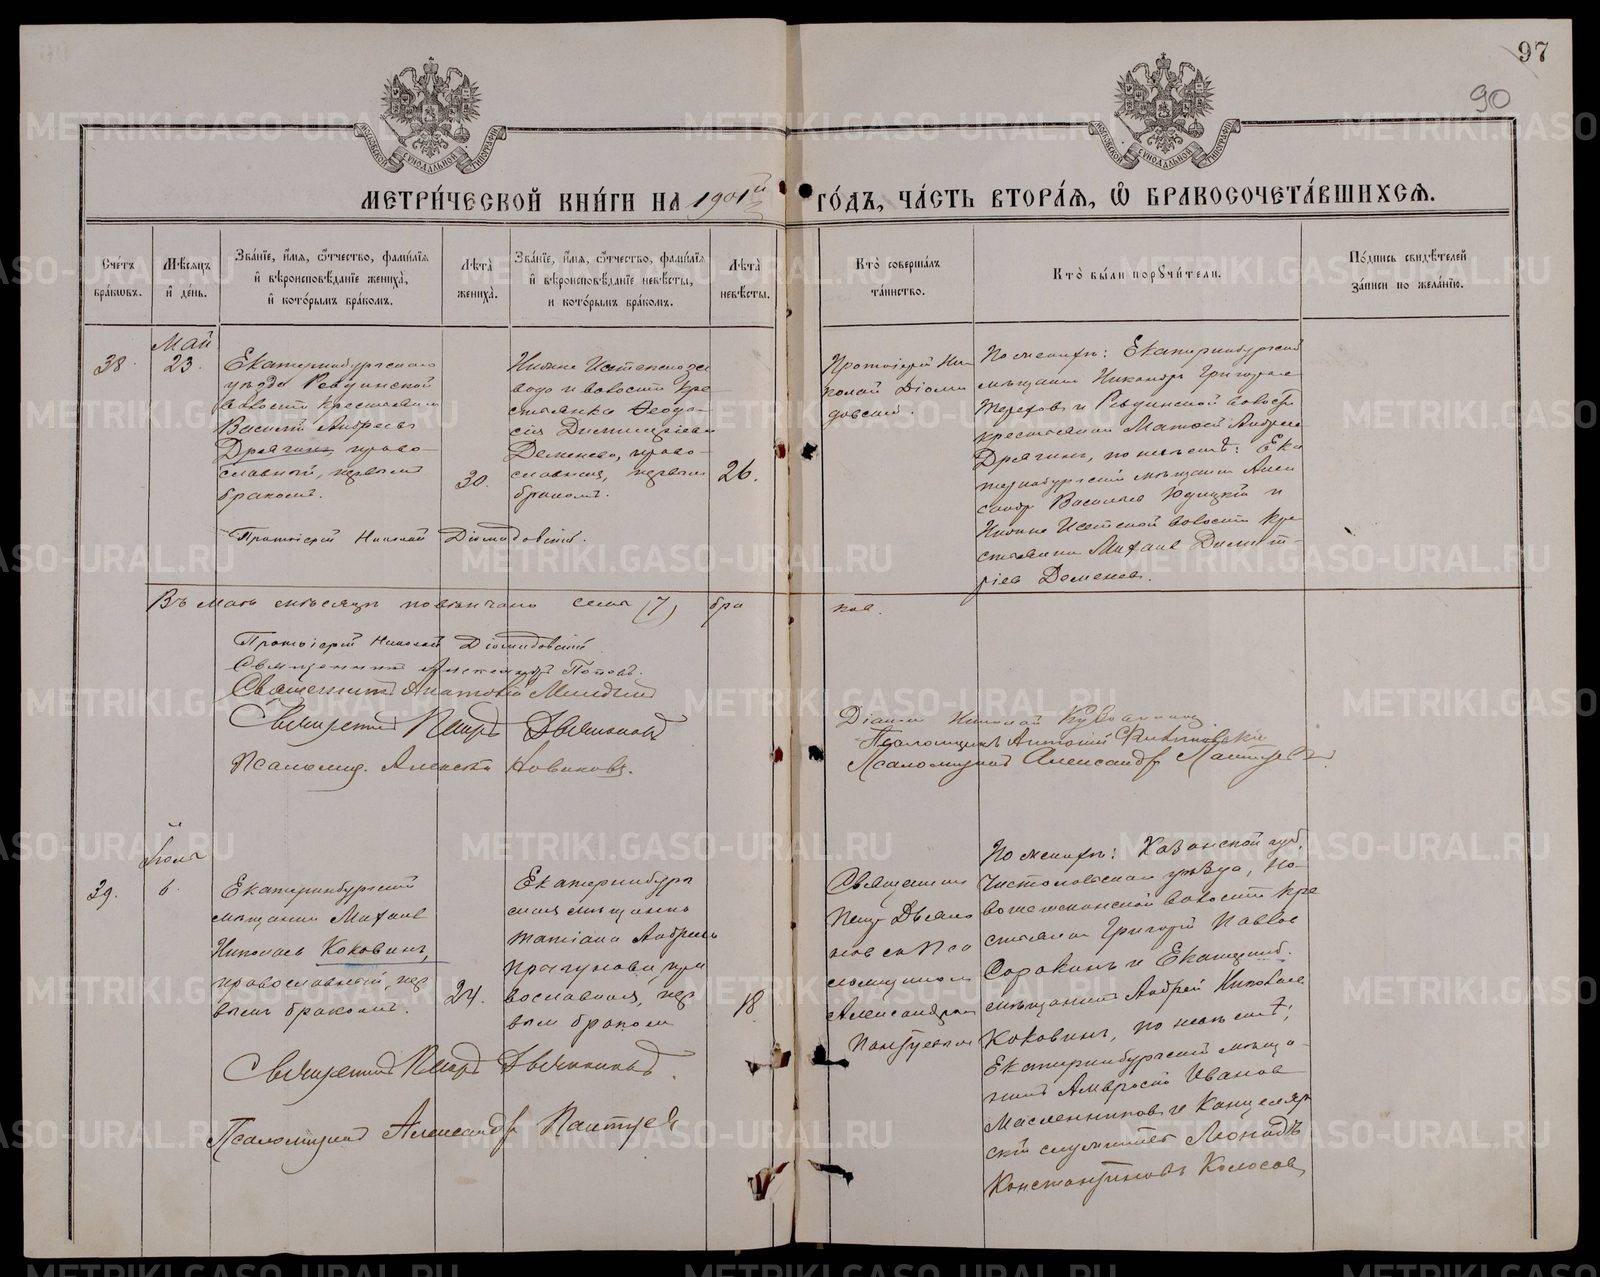 97
90
МОСКОВСКОЙ СѴНОДАЛЬНОЙ ТИПОГРАФІИ
МОСКОВСКОЙ СѴНОДАЛЬНОЙ ТИПОГРАФІИ
МЕТРИ́ЧЕСКОЙ КНИ́ГИ НА 1901й ГО́ДЪ, ЧА́СТЬ ВТОРА́Я, Ѡ҆ БРАКОСОЧЕТА́ВШИХСЯ.
Сче́тъ бра́ковъ.
Мѣ́сяцъ и҆ де́нь.
Зва́нїе, и҆́мя, ѻ҆́тчество, фами́лїя
и҆ вѣроисповѣ́данїе жениха̀,
и҆ кото́рымъ бра́комъ.
Лѣта̀ жениха̀.
Зва́нїе, и҆́мя, ѻ҆́тчество, фами́лїя
и҆ вѣроисповѣ́данїе невѣ́сты,
и кото́рымъ бра́комъ.
Лѣта̀ невѣ́сты.
Кто̀ соверша́лъ та́инство.
Кто̀ бы́ли порꙋчи́тели.
По́дпись свидѣ́телей за́писи по жела́нїю.
38.
Май
23.
Екатеринбургскаго
уѣзда Ревдинской
волости крестьянинъ
Василій Андреевъ
Дрягинъ, право-
славный, первымъ
бракомъ.
30.
Нижне Исетскаго за
вода и волости кре
стьянка Ѳеодо-
сія Димитріева
Деменева, право-
славная, первымъ
бракомъ.
26.
Протоіерей Ни-
колай Діоми
довскій.
По женихѣ: Екатеринбургскій
мѣщанин Никандръ Григорьев
Тереховъ и Ревдинской волости
крестьянин Матвей Андреев
Дрягинъ, по невѣстѣ: Ека
теринбургскій мѣщанин Алек
сандр Васильев Юдицкій и
Нижне Исетской волости кре
стьянин Михаил Димит-
ріев Деменев.
Протоіерей Николай Діомидовскій.
Въ маѣ мѣсяцѣ повѣнчано семь (7) бра
ков.
Протоіерей Николай Діомидовскій
Священникъ Александр Поповъ.
Священникъ Анатолій
Священникъ Петръ Дьяконовъ
Псаломщ. Алексѣй Новиковъ.
Діакон Николай
Псаломщикъ Антоній
Псаломщикъ Александръ Пантуев
39.
Іюнь
6.
Екатеринбургскій
мѣщанин Михаил
Николаев Коковинъ,
православный, пер
вымъ бракомъ.
24.
Екатеринбург
ская мѣщанка
Татіана Андреева
Прагунова, пра
вославная, пер
вым браком
18
Священник
Петр Дьяко
нов с Пса
ломщиком
Александром
Пантуевым
По женихѣ: Казанской губ.
Чистопольскаго уѣзда,
волости кре
стьянин Григорій Павлов
Сорокинъ и Екатеринб.
мѣщанин Андрей Николаев
Коковинъ, по невѣстѣ;
Екатеринбургскій мѣща-
нин Амвросій Иванов
Масленниковъ и Канцеляр
скій служитель Леонидъ
Константиновъ Колосов
Священникъ Петръ Дьяконовъ.
Псаломщикъ Александръ Пантуев
METRIKI.GASO-URAL.RU